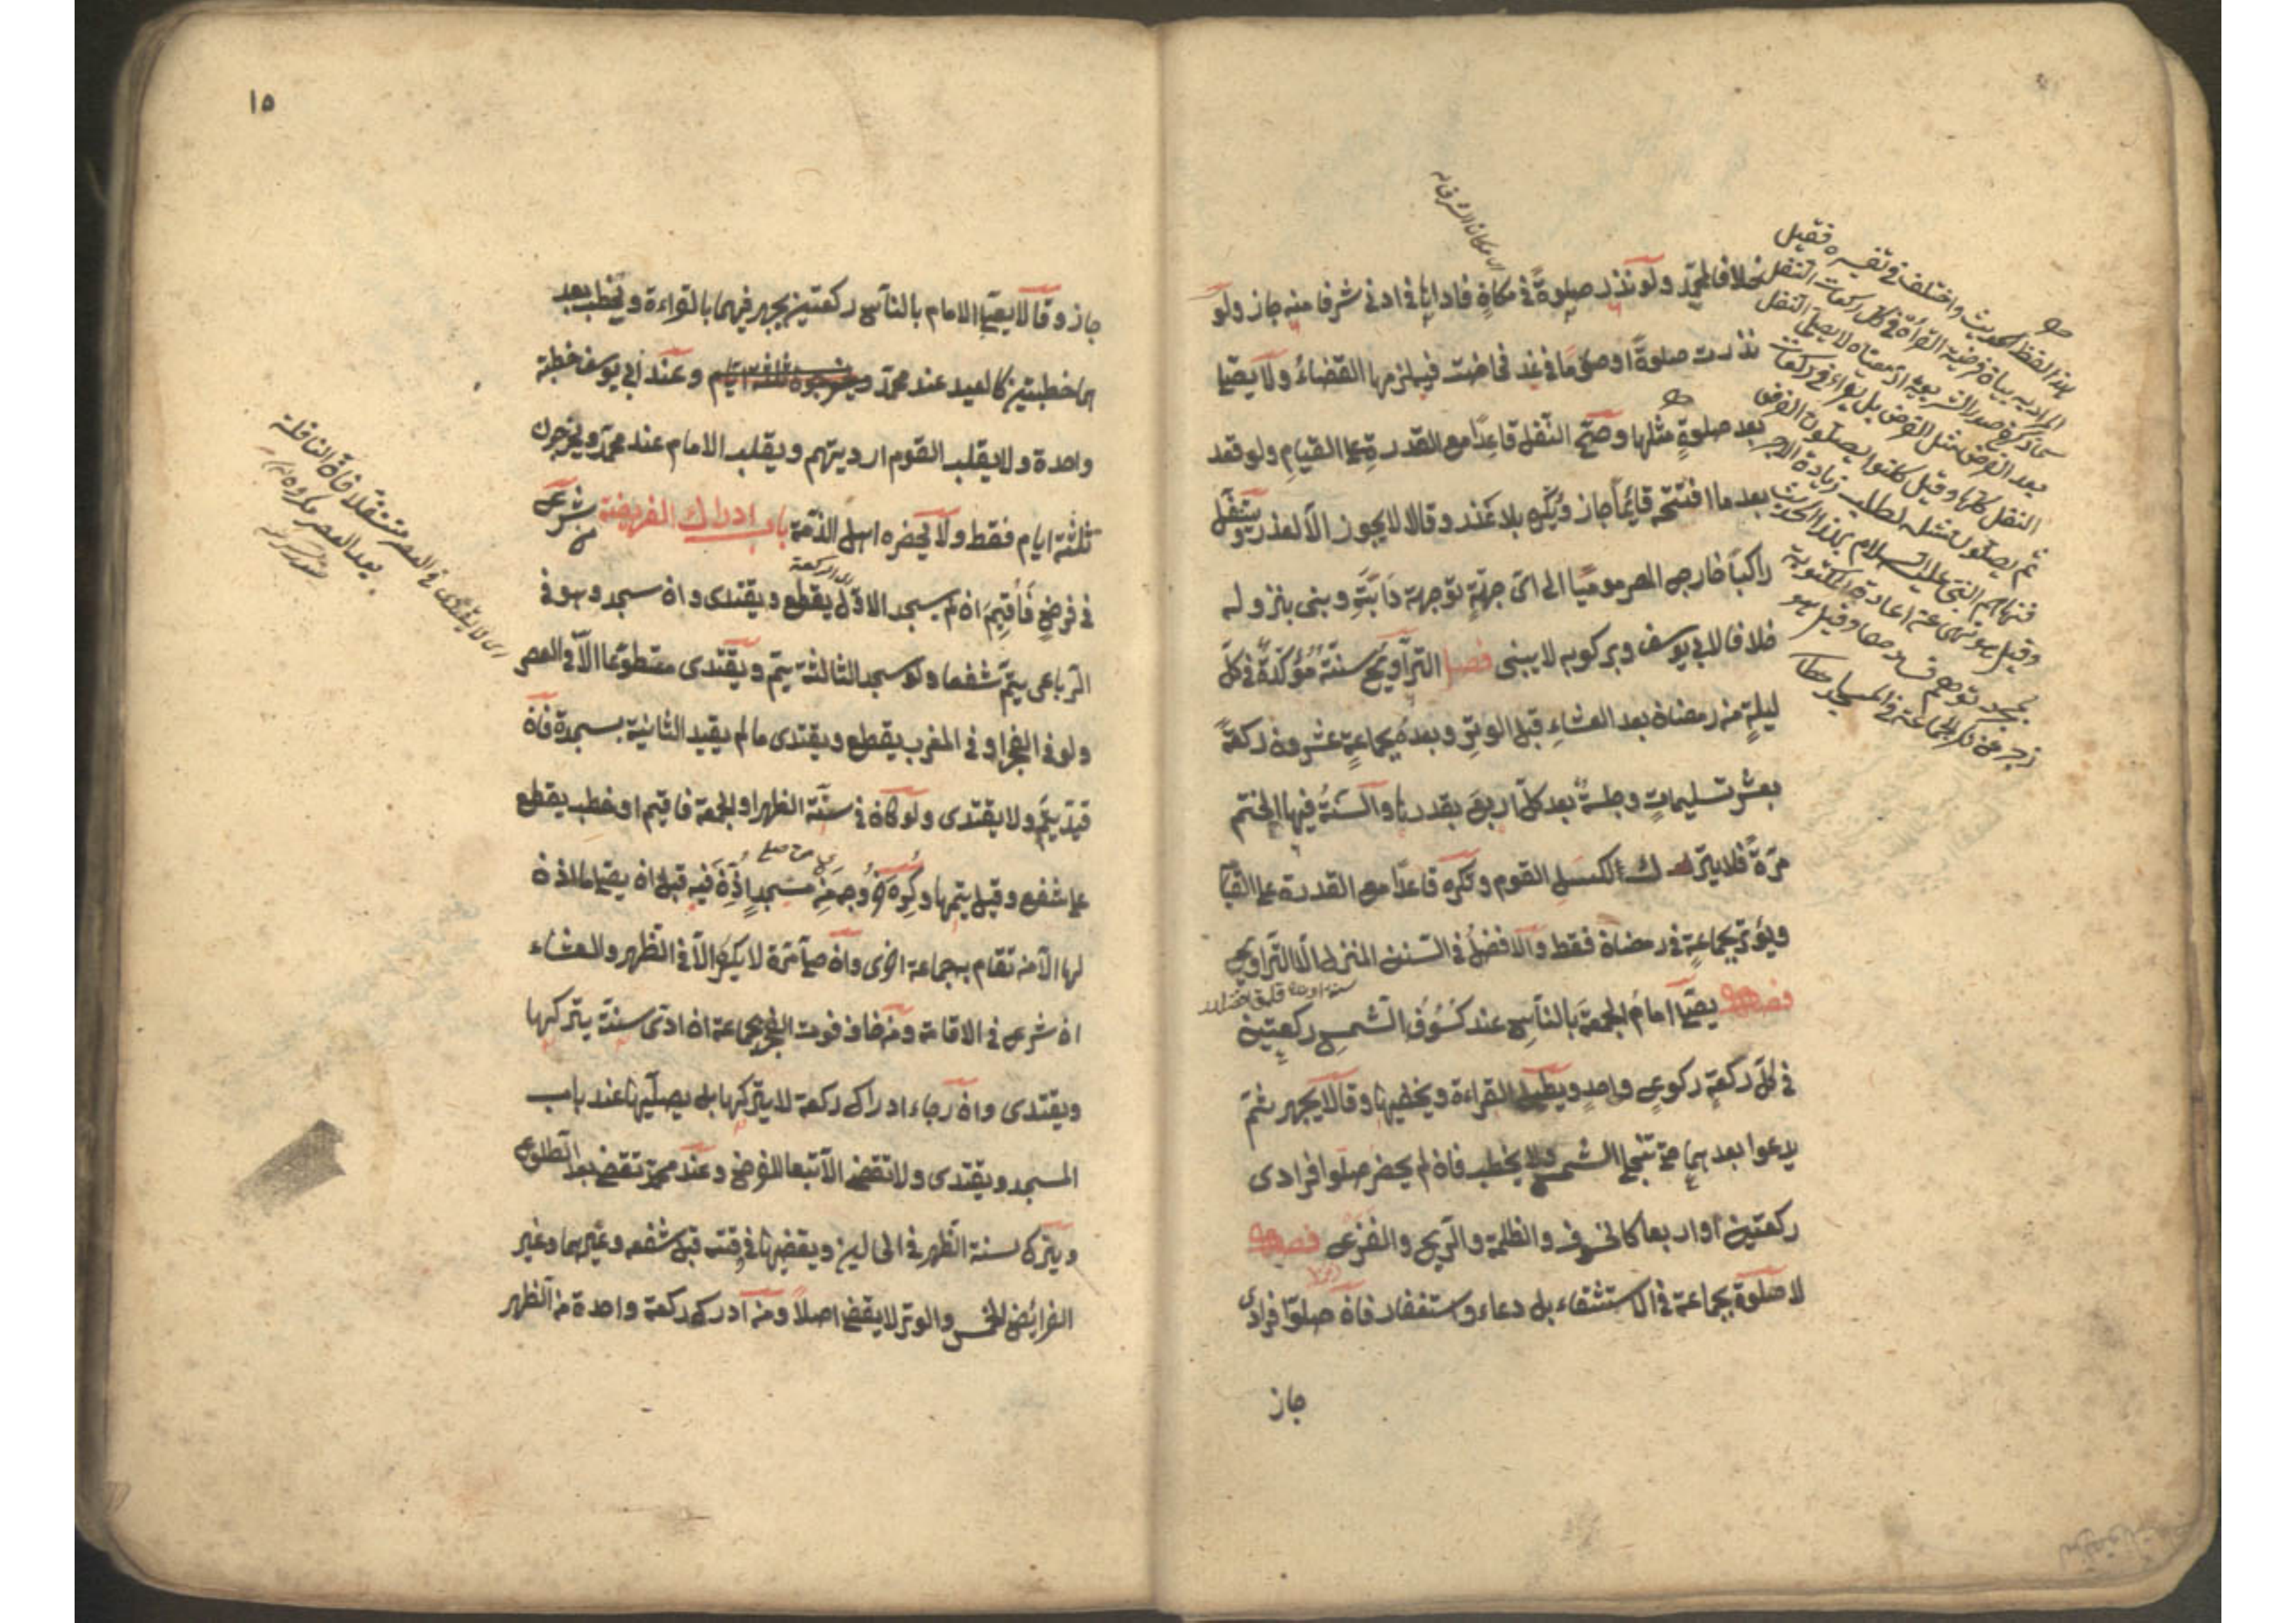 خلافا لمحمد ولو نذر صلوة في مكان فاداها في ادنى شرفا منه جاز ولو
نذرت صلوة او صوما في غد فحاضت فيه يلزمها القضاء ولا يصلى
بعد صلوة مثلها وصح النفل قاعدا مع القدرة على القيام ولو قعد
بعد ما افتتحه قائما جاز ويكره بلا عذر وقالا لا يجوز الا لعذر ويتنفل
راكبا خارج المصر موميا الى اى جهة توجهت دابته وبنى بنزوله
خلافا لابي يوسف وبركوبه لا يبنى فصل التراويح سنة مؤكدة في كل
ليلة من رمضان بعد العشاء قبل الوتر وبعده بجماعة عشرون ركعة
بعشر تسليمات وجلسة بعد كل اربع بقدرها والسنة فيها الختم
مرة فلا يترك لكسل القوم وتكره قاعدا مع القدرة على القيام
ويوتر بجماعة في رمضان فقط والافضل في السنن المنزل الا التراويح
فصل يصلى امام الجمعة بالناس عند كسوف الشمس ركعتين
في كل ركعة ركوع واحد ويطيل القراءة ويخفيها وقالا يجهر ثم
يدعوا بعدهما حتى تنجلى الشمس ولا يخطب فان لم يحضر صلوا فرادى
ركعتين او اربعا كالخسوف والظلمة والريح والفزع فصل
لا صلوة بجماعة في الاستسقاء بل دعاء واستغفار فان صلوا فرادى
جاز
اى مكان الشرفى
هذا لفظ الحديث واختلف في تفسيره فقيل
المراد به بيان فرضية القراءة في كل ركعات النفل
كما ذكر في صدر الشريعة اذ معناه لا يصلى النفل
بعد الفرض مثل الفرض بل يقراء في ركعات
النفل كلها وقيل كانوا يصلون الفرض
ثم يصلون مثله لطلب زيادة الاجر
فنهاهم النبي عليه السلام بهذا الحديث
وقيل هو نهى عن اعادة المكتوبة
بمجرد توهم فساد وقيل هو
زجر عن تكرير الجماعة في المساجد
١٥
جاز وقالا يصلى الامام بالناس ركعتين يجهر فيهما بالقراءة ويخطب بعد
هما خطبتين كالعيد عند محمد ويخرجون ثلثة ايام وعند ابي يوسف خطبة
واحدة ولا يقلب القوم ارديتهم ويقلب الامام عند محمد ويخرجون
ثلثة ايام فقط ولا يحضره اهل الذمة باب ادراك الفريضة من شرع
في فرض فاقيم ان لم يسجد الاولى يقطع ويقتدى وان سجد وهو في
الرباعى يتم شفعا ولو سجد الثالثة يتم ويقتدى متطوعا الا في العصر
ولو في الفجر او في المغرب يقطع ويقتدى ما لم يقيد الثانية بسجدة فان
قيد يتم ولا يقتدى ولو كان في سنة الظهر او الجمعة فاقيم او خطب يقطع
على شفع وقيل يتمها وكره خروجه من مسجد اذن فيه قبل ان يصلى ما اذن
لها الا من تقام به جماعة اخرى وان صلى مرة لا يكره الا في الظهر والعشاء
ان شرع في الاقامة ومن خاف فوت الفجر بجماعة ان ادى سنة يتركها
ويقتدى وان رجاء ادراك ركعة لا يتركها بل يصليها عند باب
المسجد ويقتدى ولا تقضى الا تبعا للفرض وعند محمد تقضى بعد الطلوع
ويترك سنة الظهر في الحالين ويقضيها في وقته قبل شفعه وغيرهما وغير
الفرائض الخمس والوتر لا يقضى اصلا ومن ادرك ركعة واحدة من الظهر
اى لا يقتدى في العصر متنفلا فان النافلة
بعد العصر مكروه